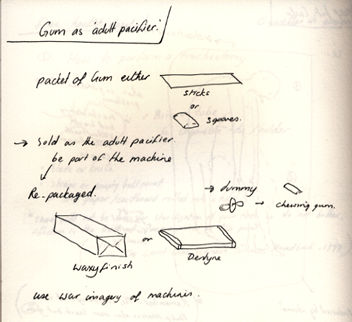 Gum as 'adult pacifier.'
packet of Gum either
sticks
or
squares.
→ Sold as the adult pacifier
be part of the machine
Re-packaged.
→ dummy
→ chewing gum.
or
Waxy finish
Dentyne
use war imagery of machines.